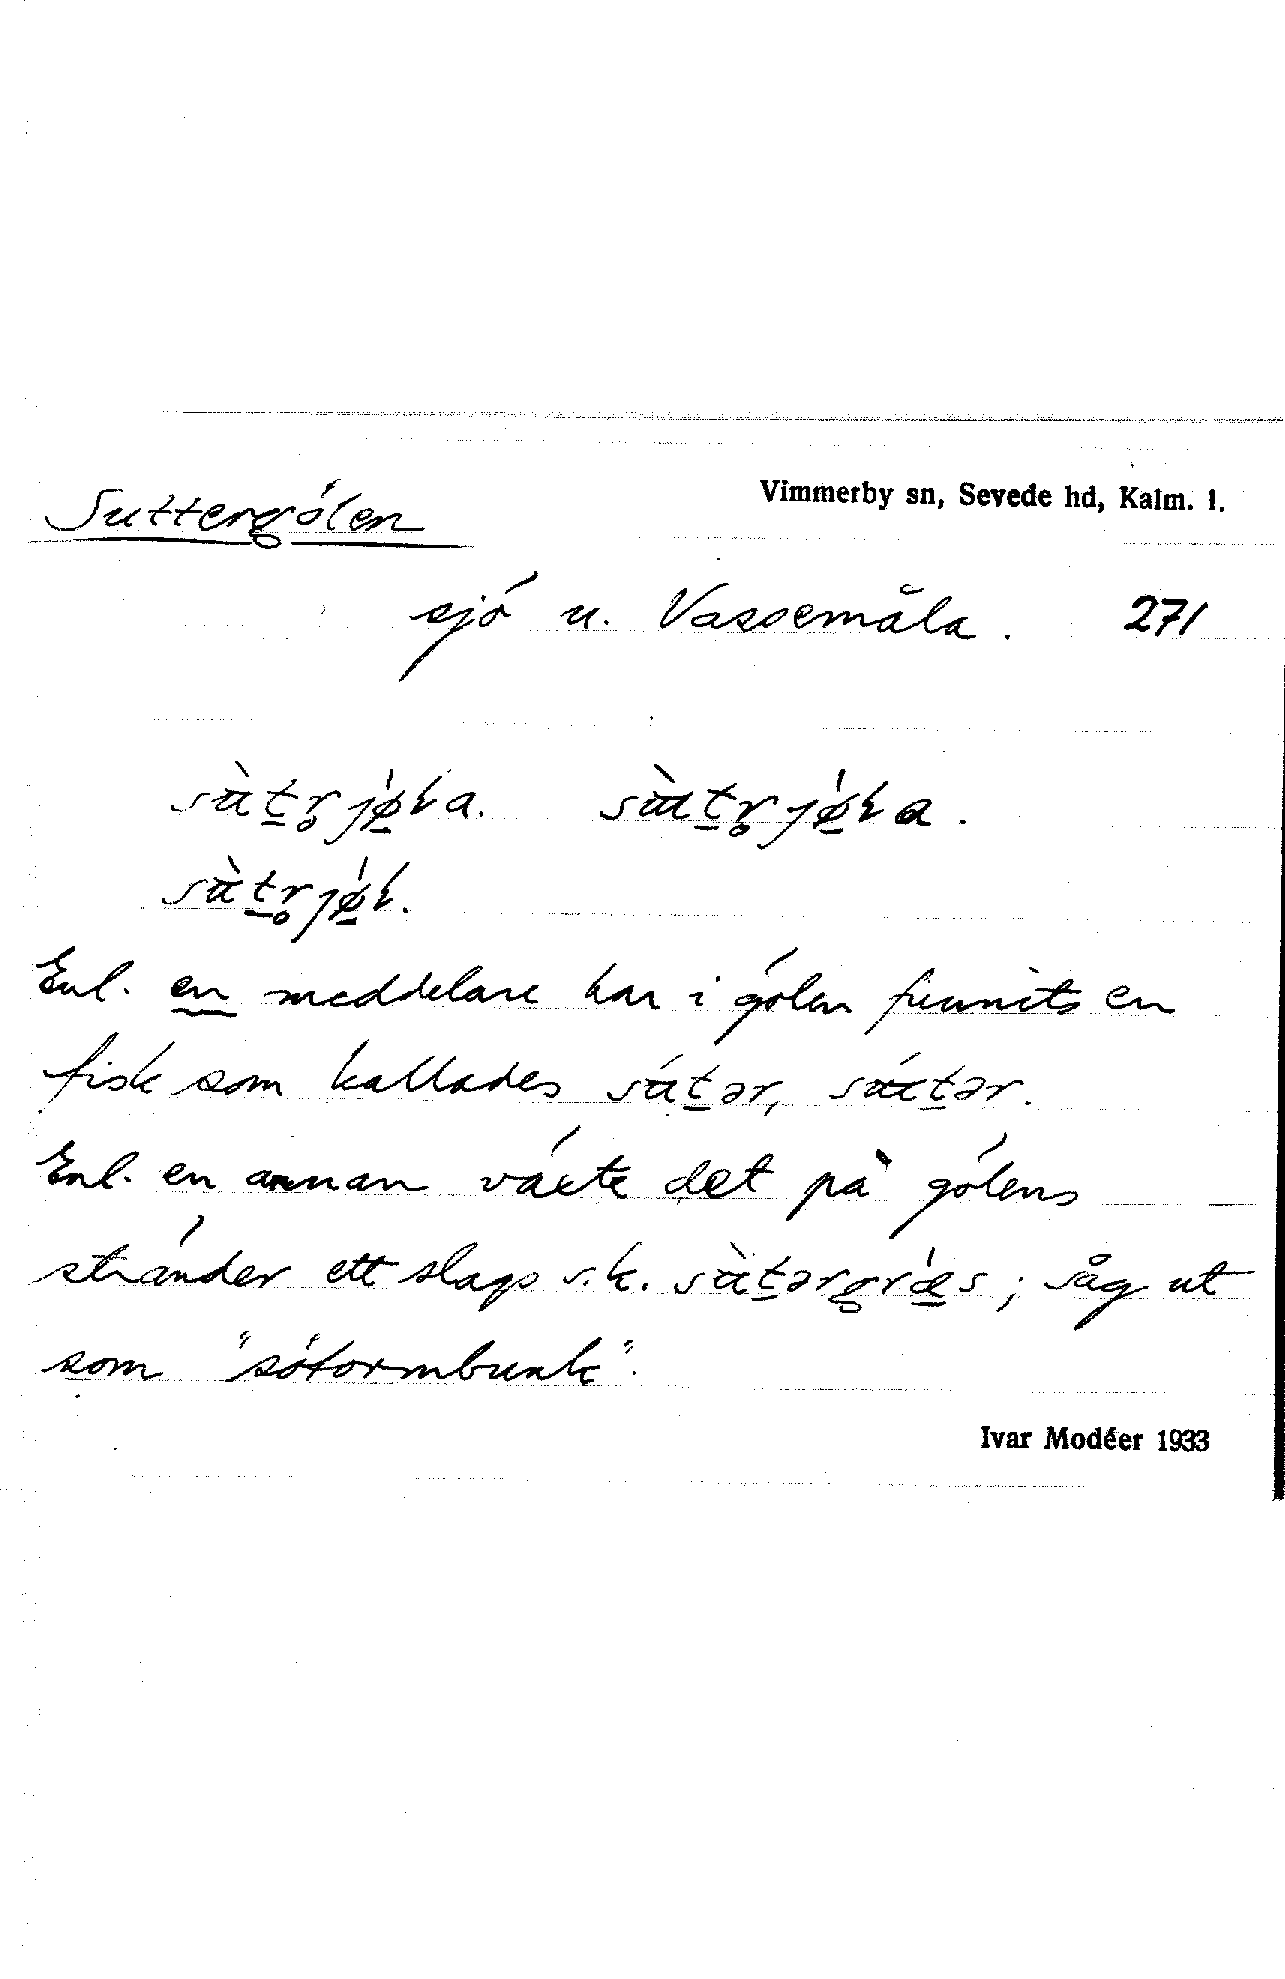 Suttergölen
Vimmerby sn, Sevede hd, Kalm. l.
sjö u. Vassemåla. 271
Enl. en meddelare har i gölen funnits en
fisk som kallades
Enl. en annan växte det på gölens
stränder ett slags s.k. ; såg ut
som "sötormbunk".
Ivar Modéer 1933